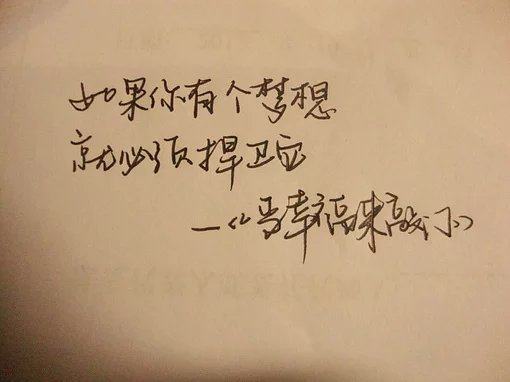 如果你有个梦想
就必须捍卫它
—《当幸福来敲门》